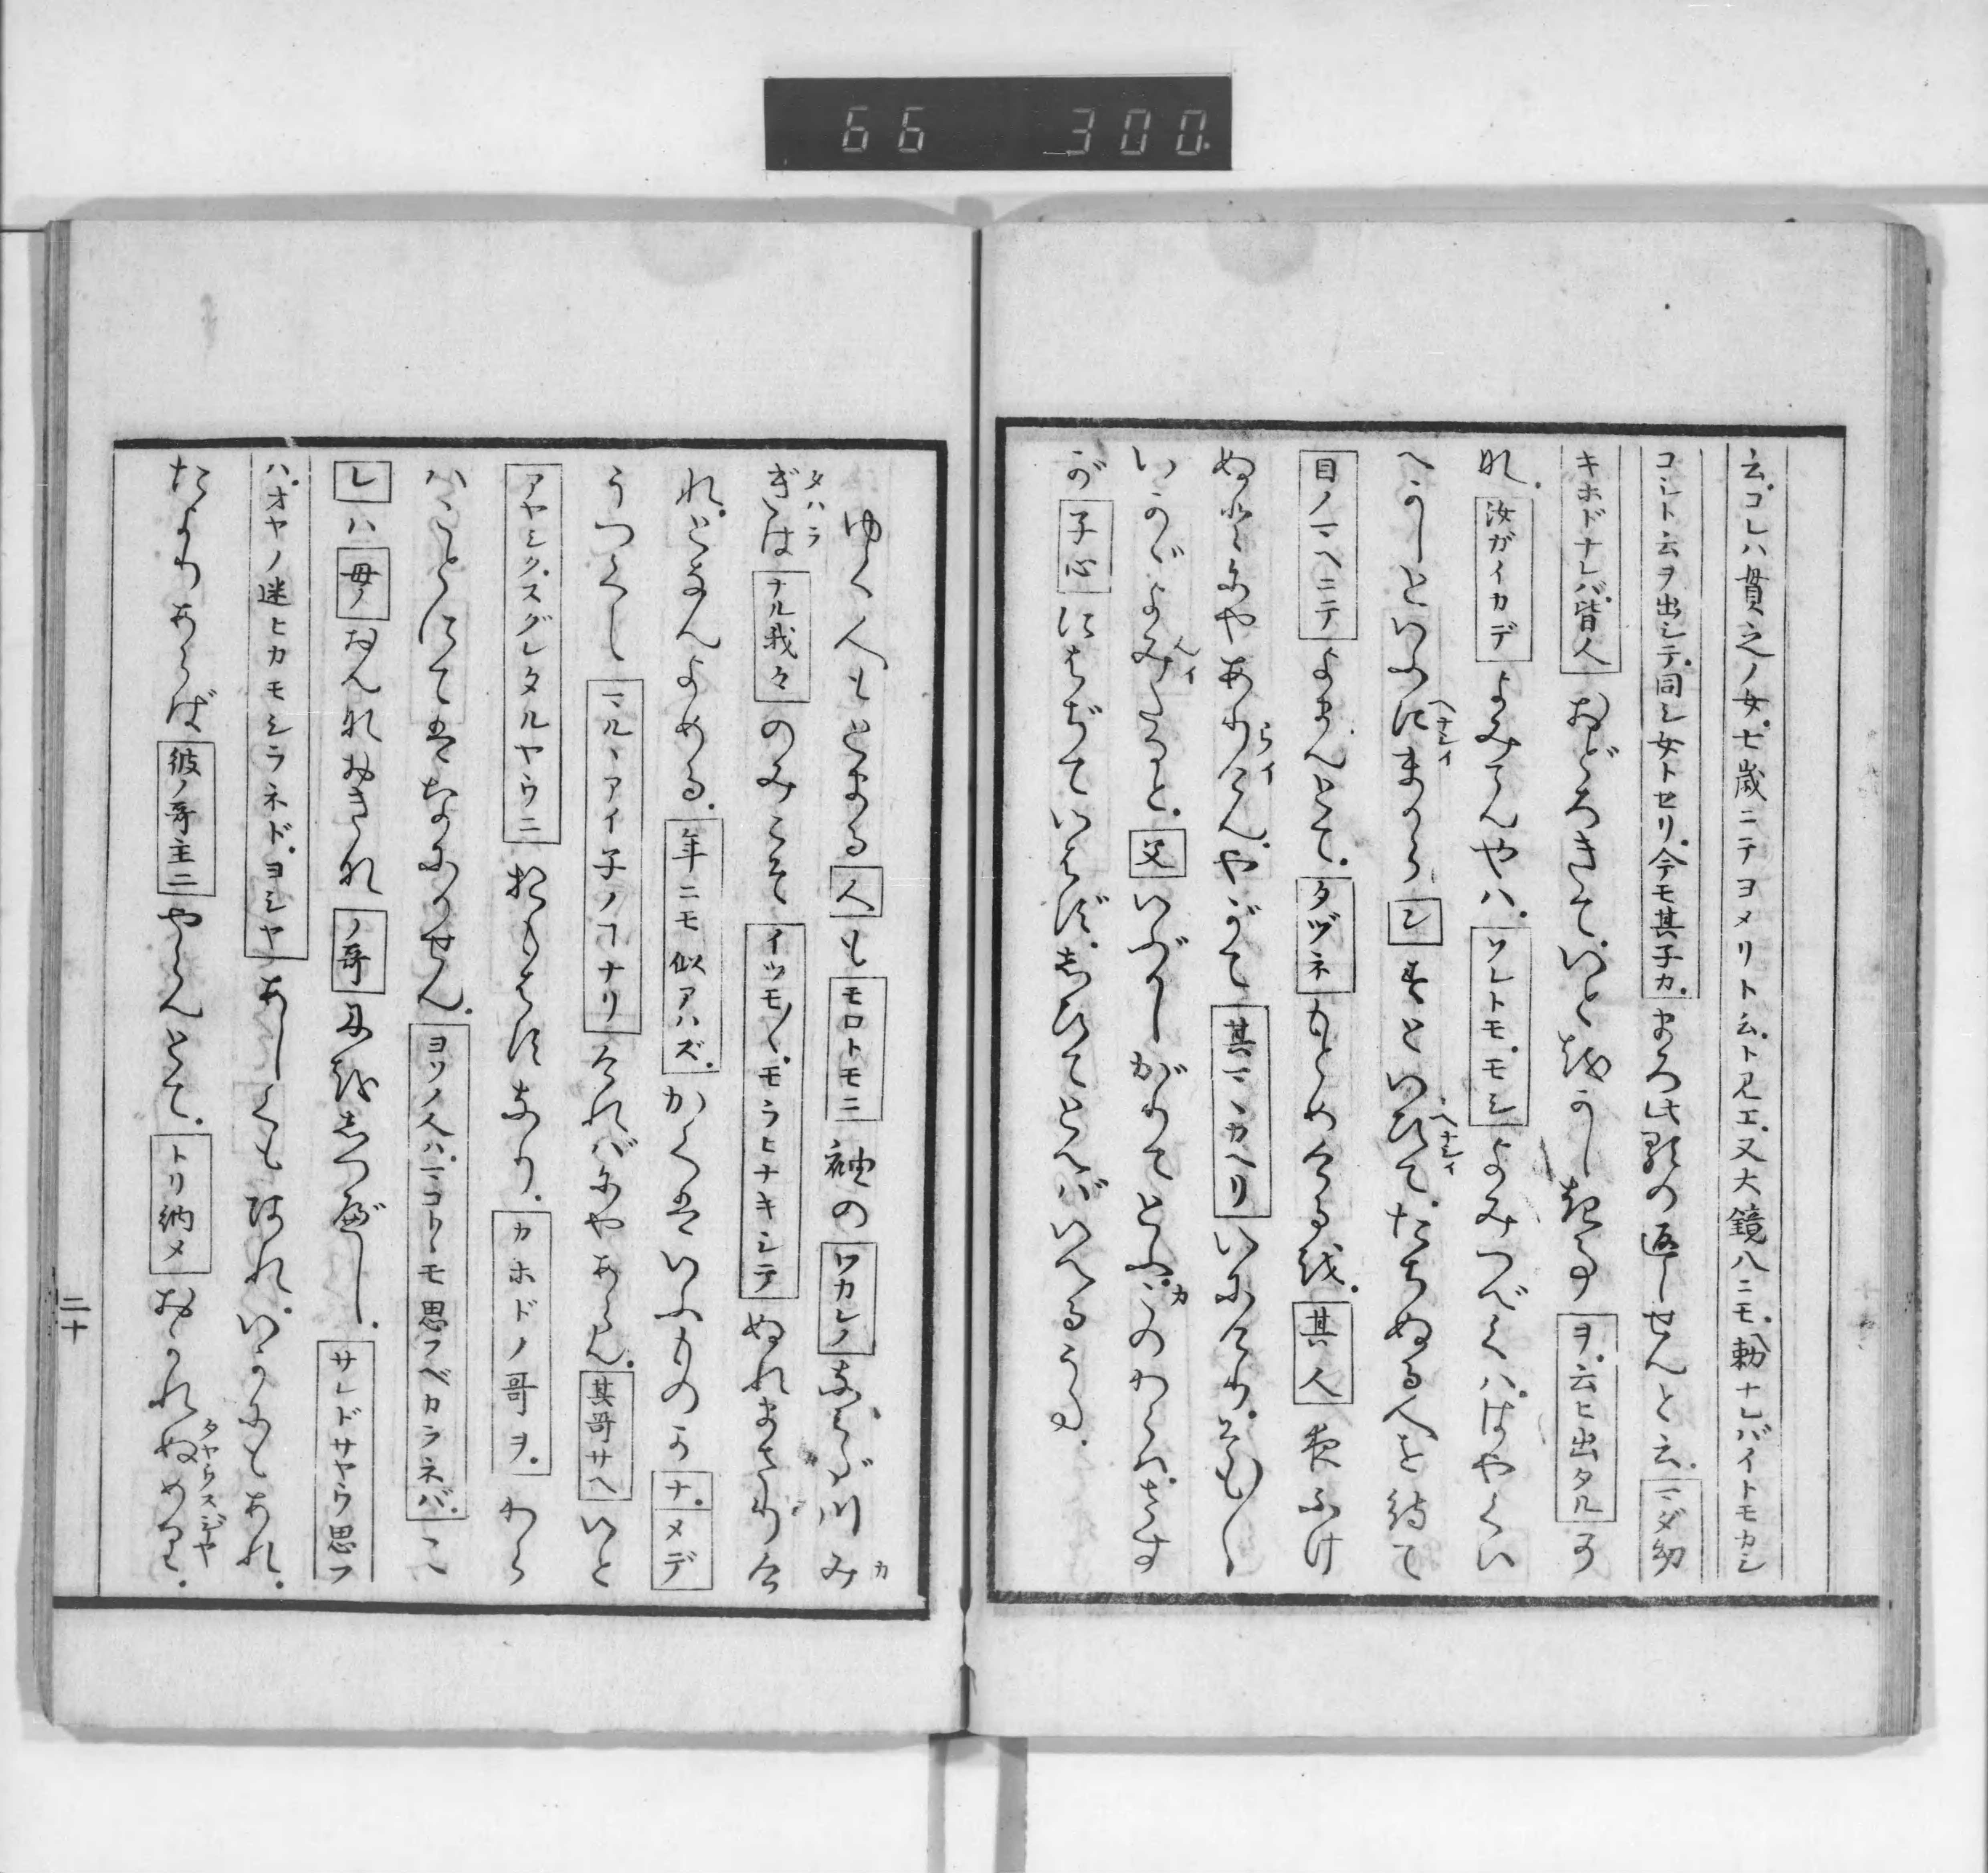 66 300
云。コレハ貫之ノ女。七歳ニテヨメリト云。ト見エ。又大鏡八ニモ。勅ナレバイトモカシ
コシト云ヲ出シテ。同シ女トセリ。今モ其子カ。まろ此歌の返しせんと云。マダ幼
キホドナレバ。皆人おどろきて。いとをかしき事ヲ。云ヒ出タルか
な。汝ガイカデよみてんやハ。ソレトモ。モシよみつべくハ。はやくい
へかしといふにまからシずといひて。たちぬる人を待て
ヘナシイ
ヘナシイ
目ノマヘニテよまんとて。タヅネもとめけるを。其人夜ふけ
ぬとにやありけん。やがて其マヽカヘリいにけり。そも〱
らイ
いかゞよみたると。父いぶかしがりてとふ。このわらハ。さす
んイ
カ
が子心にはぢていはず。しひてとへバいへるうた。
ゆく人もとまる人もモロトモニ袖のワカレノなみだ川み
カ
ぎはナル我々のみこそイツモ〱。モラヒナキシテぬれまさりけ
タハラ
れ。となんよめる。年ニモ似アハズ。かくはいふものかナ。メデ
うつくしマルヽアイ子ノヿナリければにやあらん。其哥サヘいと
アヤシク。スグレタルヤウニおもはずなり。カホドノ哥ヲ。わら
ハごとにてはなにかせん。ヨソノ人ハ。マコトヽモ思フベカラネバ。こ
レハ母ノおんなおきなノ哥にをしつべし。サレドサヤウ思フ
ハ。オヤノ迷ヒカモシラネド。ヨシヤあしくもあれ。いかにもあれ。
たよりあらば彼ノ哥主ニやらんとて。トリ納メおかれぬめり。
タヤウスジヤ
二十